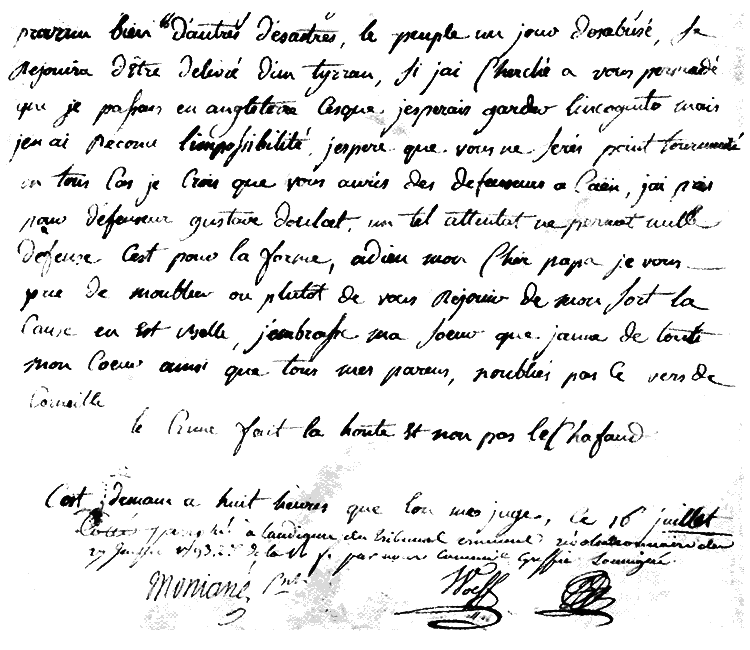 prevenu bien d'autres désastres, le peuple un jour desabusé, se
Rejouira d'être delivré d'un tyrran, si jai Cherché a vous persuadé
que je passais en angleterre Cesque jesperais garder lincognito mais
jen ai Reconu l'impossibilité, jespere que vous ne serés point tourmenté
en tous Cas je Crois que vous auriés des defenseurs a Caën, jai pris
pour défenseur gustave doulcet, un tel attentat ne permet nulle
défense Cest pour la forme, adieu mon Cher papa je vous
prie de moublier ou plutôt de vous Rejouir de mon sort la
Cause en Est belle, j'embrasse ma soeur que jaime de toute
mon Coeur ainsi que tous mes parens, noubliés pas Ce vers de
Corneille
le Crime fait la honte Et non pas lEchafaud
Cest demain a huit heures que lon me juge, Ce 16 juillet
à laudience du tribunal criminel révolutionnaire du
par nous Commis Greffier Soussigné
Montané Pnt
Wolff